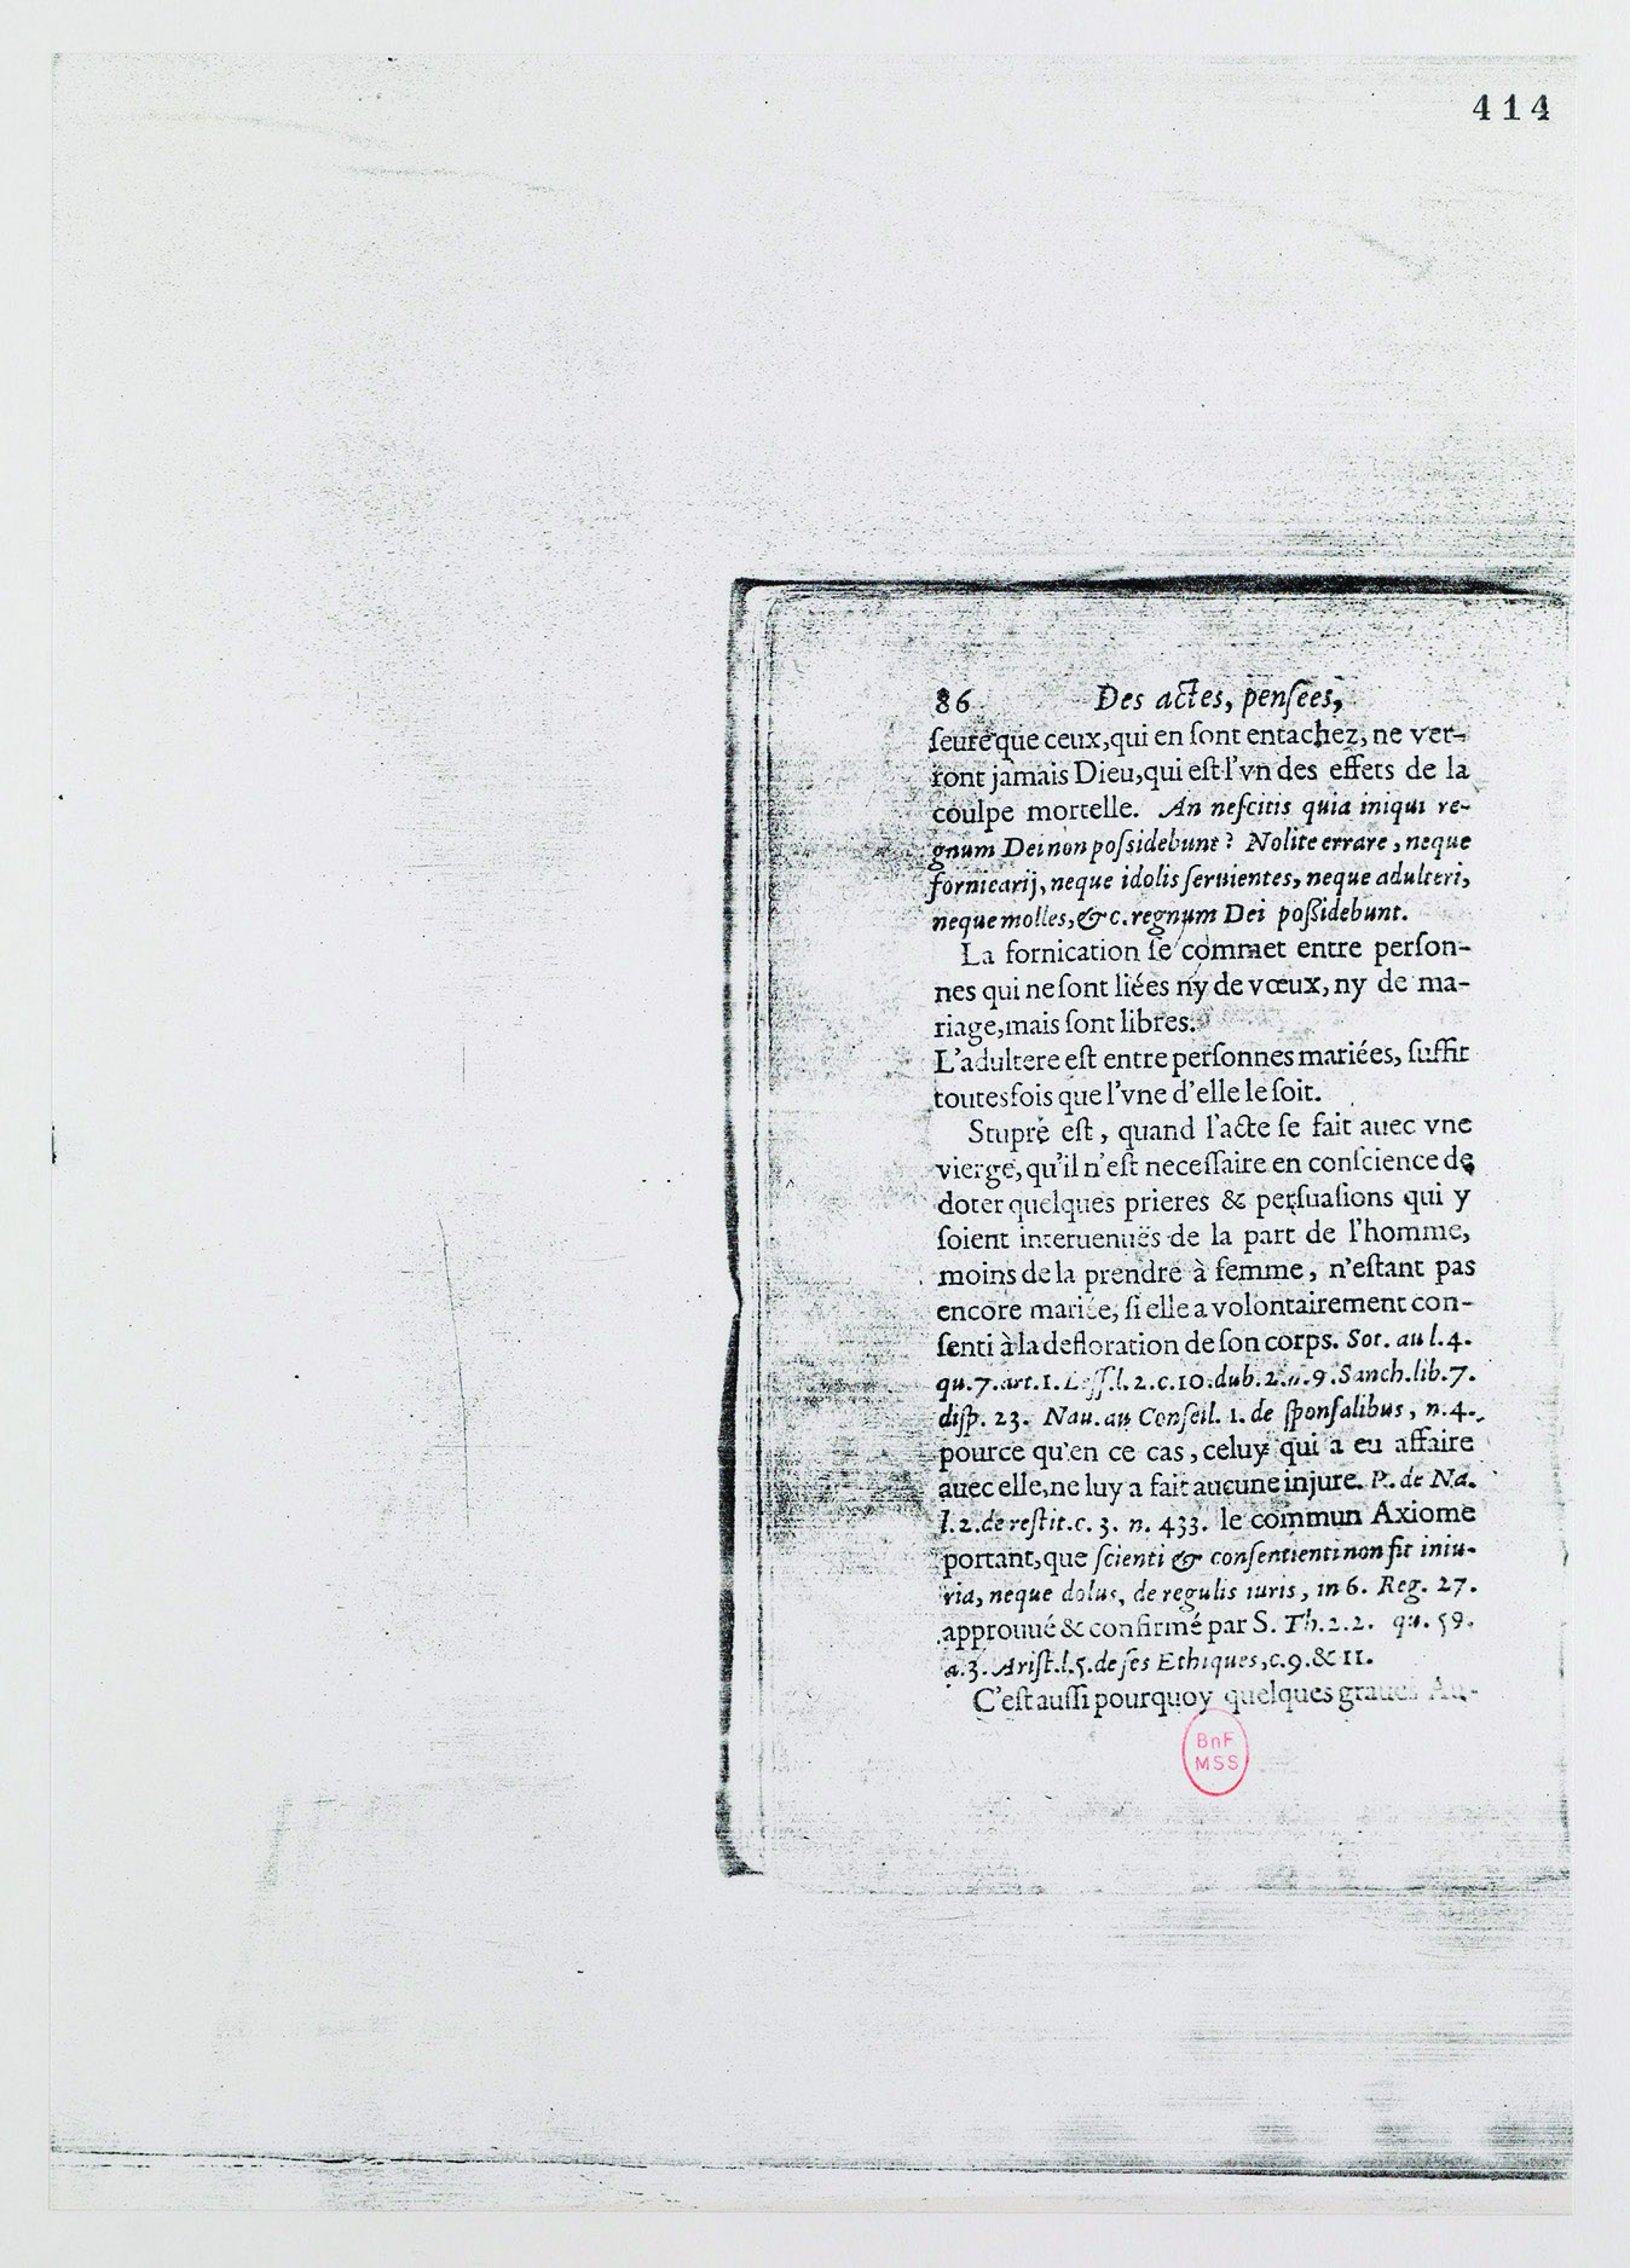 414
86 Des actes, pensees,
seure que ceux, qui en sont entachez, ne ver-
ront jamais Dieu, qui est l'vn des effets de la
coulpe mortelle. An nescitis quia iniqui re-
gnum Dei non possidebunt? Nolite errare, neque
fornicarij, neque idolis seruientes, neque adulteri,
neque molles, &c. regnum Dei possidebunt.
La fornication se commet entre person-
nes qui ne sont liées ny de vœux, ny de ma-
riage, mais sont libres.
L'adultere est entre personnes mariées, suffit
toutesfois que l'vne d'elle le soit.
Stupre est, quand l'acte se fait auec vne
vierge, qu'il n'est necessaire en conscience de
doter quelques prieres & persuasions qui y
soient interuenuës de la part de l'homme,
moins de la prendre à femme, n'estant pas
encore mariée, si elle a volontairement con-
senti à la defloration de son corps. Sot. au l.4.
qu.7.art.1. Less.l.2.c.10.dub.2.n.9.Sanch.lib.7.
disp. 23. Nau. au Conseil. 1. de sponsalibus, n.4.
pource qu'en ce cas, celuy qui a eu affaire
auec elle, ne luy a fait aucune injure. P. de Na.
l.2.de restit.c. 3. n. 433. le commun Axiome
portant, que scienti & consentienti non fit iniu-
ria, neque dolus, de regulis iuris, in 6. Reg. 27.
approuué & confirmé par S. Th.2.2. qu. 59.
a.3. Arist.l.5.de ses Ethiques, c.9.& 11.
C'est aussi pourquoy quelques graues Au-
BnF
MSS